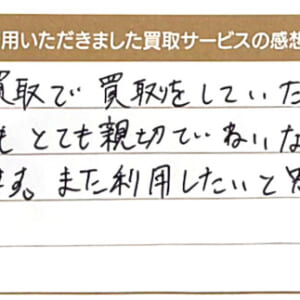 用いただきました買取サービスの感想
買取で買取をしていた
もとても親切でいねいな
す。また利用したいと